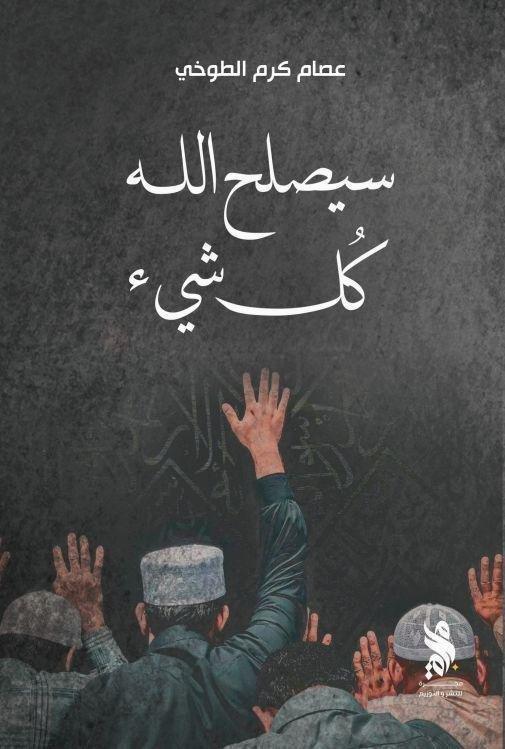 عصام كرم الطوخي
سيصلح الله
كُل شيء
مجرة
للنشر والتوزيع